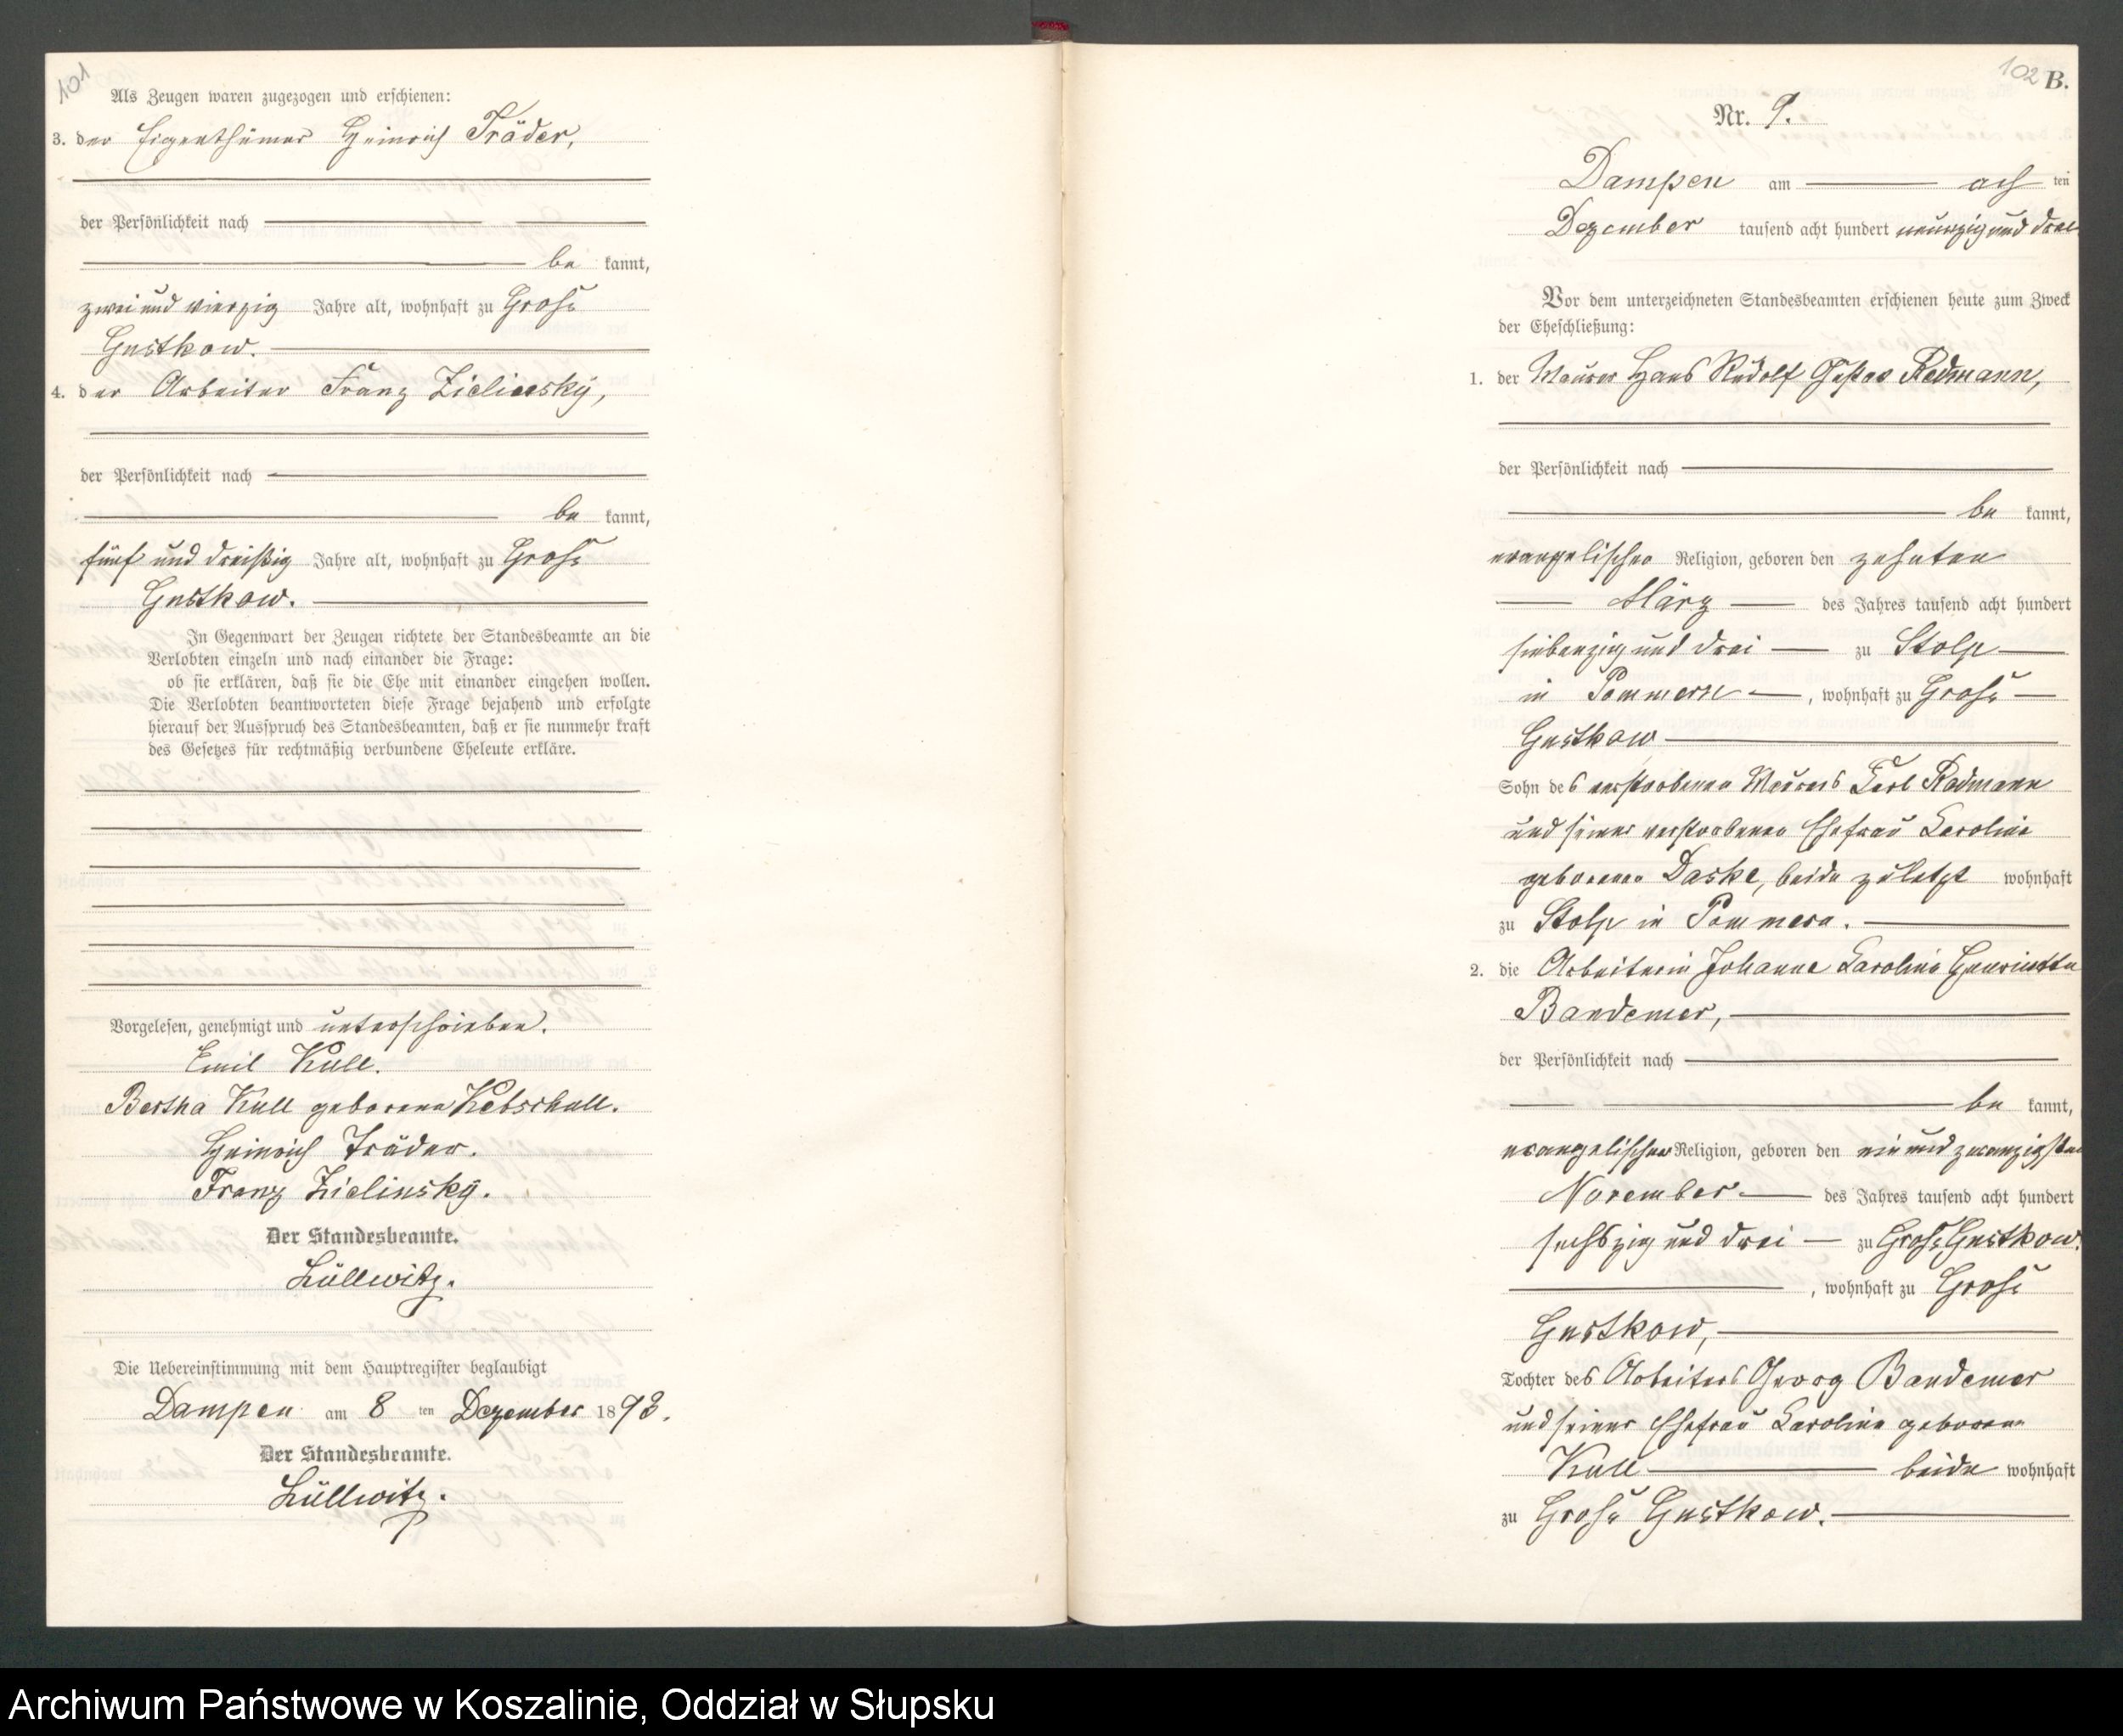 101
Als Zeugen waren zugezogen und erschienen:
3. der Eigenthümer Heinrich Träder,
der Persönlichkeit nach
be kannt,
zwei und vierzig Jahre alt, wohnhaft zu Groß
Gustkow.
4. der Arbeiter Franz Zielinsky,
der Persönlichkeit nach
be kannt,
fünf und dreißig Jahre alt, wohnhaft zu Groß
Gustkow.
In Gegenwart der Zeugen richtete der Standesbeamte an die
Verlobten einzeln und nach einander die Frage:
ob sie erklären, daß sie die Ehe mit einander eingehen wollen.
Die Verlobten beantworteten diese Frage bejahend und erfolgte
hierauf der Ausspruch des Standesbeamten, daß er sie nunmehr kraft
des Gesetzes für rechtmäßig verbundene Eheleute erkläre.
Vorgelesen, genehmigt und unterschrieben.
Emil Kull.
Bertha Kull geborene
Heinrich Träder.
Franz Zielinsky.
Der Standesbeamte.
Lüllwitz.
Die Uebereinstimmung mit dem Hauptregister beglaubigt
Dampen am 8 ten Dezember 1893.
Der Standesbeamte.
Lüllwitz.
102 B.
Nr. 9.
Dampen am ach ten
Dezember tausend acht hundert neunzig und drei
Vor dem unterzeichneten Standesbeamten erschienen heute zum Zweck
der Eheschließung:
1. der Maurer Hans Rudolf Redmann,
der Persönlichkeit nach
be kannt,
evangelischer Religion, geboren den zehnten
März des Jahres tausend acht hundert
siebenzig und drei zu Stolp
in Pommern, wohnhaft zu Groß
Gustkow
Sohn des verstorbenen Maurers Karl Radmann
und seiner verstorbenen Ehefrau Karoline
geborenen Daske, beide zuletzt wohnhaft
zu Stolp in Pommern.
2. die Arbeiterin Johanne Karoline Henriette
Bandemer,
der Persönlichkeit nach
be kannt,
evangelischer Religion, geboren den ein und zwanzigsten
November des Jahres tausend acht hundert
sechszig und drei zu Groß Gustkow.
, wohnhaft zu Groß
Gustkow,
Tochter des Arbeiters Georg Bandemer
und seiner Ehefrau Karoline geborene
Kull beide wohnhaft
zu Groß Gustkow.
Archiwum Państwowe w Koszalinie, Oddział w Słupsku